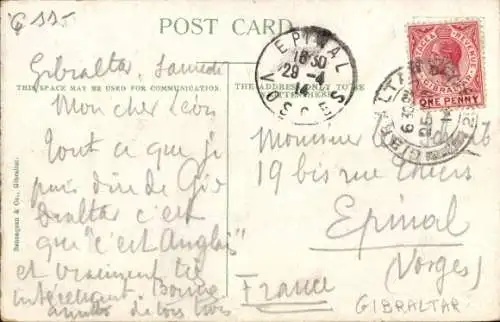 G 335
POST CARD
THIS SPACE MAY BE USED FOR COMMUNICATION.
THE ADDRESS ONLY TO BE
WRITTEN HERE.
Gibraltar, Samedi
Mon cher
Tout ce que je
puis dire de Gi
braltar c'est
que "c'est Anglais"
et vraiment très
intéressant Bonne
de tous trois
Benzaquen & Co., Gibraltar.
EPINAL
18 30
29 - 4
14
VOSGES
POSTAGE & REVENUE
GIBRALTAR
ONE PENNY
GIBRALTAR
Monsieur
19 bis rue Thiers
Epinal
(Vosges)
France
GIBRALTAR